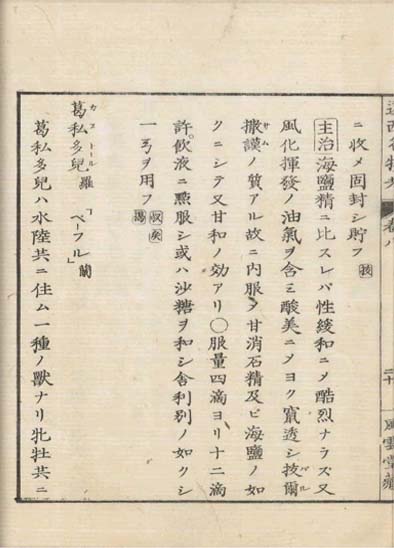 ニ收メ固封シ貯フ
主治海鹽精ニ比スレバ性緩和ニメ酷烈ナラズ又
風化揮發ノ油氣ヲ含ミ酸美ニメヨク竄透シ抜爾
撒謨ノ質アル故ニ内服メ甘消石精及ビ海鹽ノ如
クニシテ又甘和ノ効アリ〇服量四滴ヨリ十二滴
許飲液ニ點服シ或ハ沙糖ヲ和シ舎利別ノ如クシ
一ヲ用フ
葛私多兒羅「ベーフル」蘭
葛私多兒ハ水陸共ニ住ム一種ノ獸ナリ牝牡共ニ
遠西名物考 卷八 二十 風雲堂藏